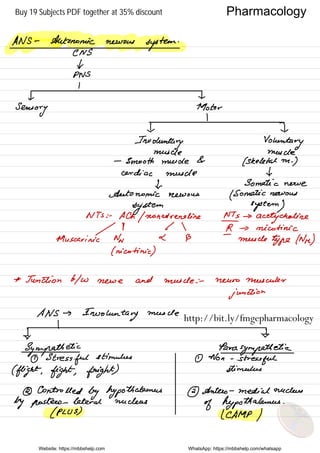 Buy 19 Subjects PDF together at 35% discount
Pharmacology
ANS - Autonomic nervous system.
CNS
PNS
Sensory
Motor
Involuntary muscle
Voluntary muscle
- Smooth muscle &
cardiac muscle
(skeletal m.)
Autonomic nervous
system
Somatic nerve
(Somatic nervous
system)
NTs:- ACh/noradrenaline
NTs → acetylcholine
Muscarinic NN α β
(nicotinic)
R → nicotinic
muscle type (NM)
* Junction b/w nerve and muscle:- neuro muscular
junction
ANS → Involuntary muscle
http://bit.ly/fmgepharmacology
Sympathetic
Parasympathetic
① Stressful stimulus
(flight, fight, fright)
① Non-stressful
stimulus
② Controlled by hypothalamus
by postero-lateral nucleus
(PLUS)
② Antero-medial nucleus
of hypothalamus.
(CAMP)
Website: https://mbbshelp.com
WhatsApp: https://mbbshelp.com/whatsapp